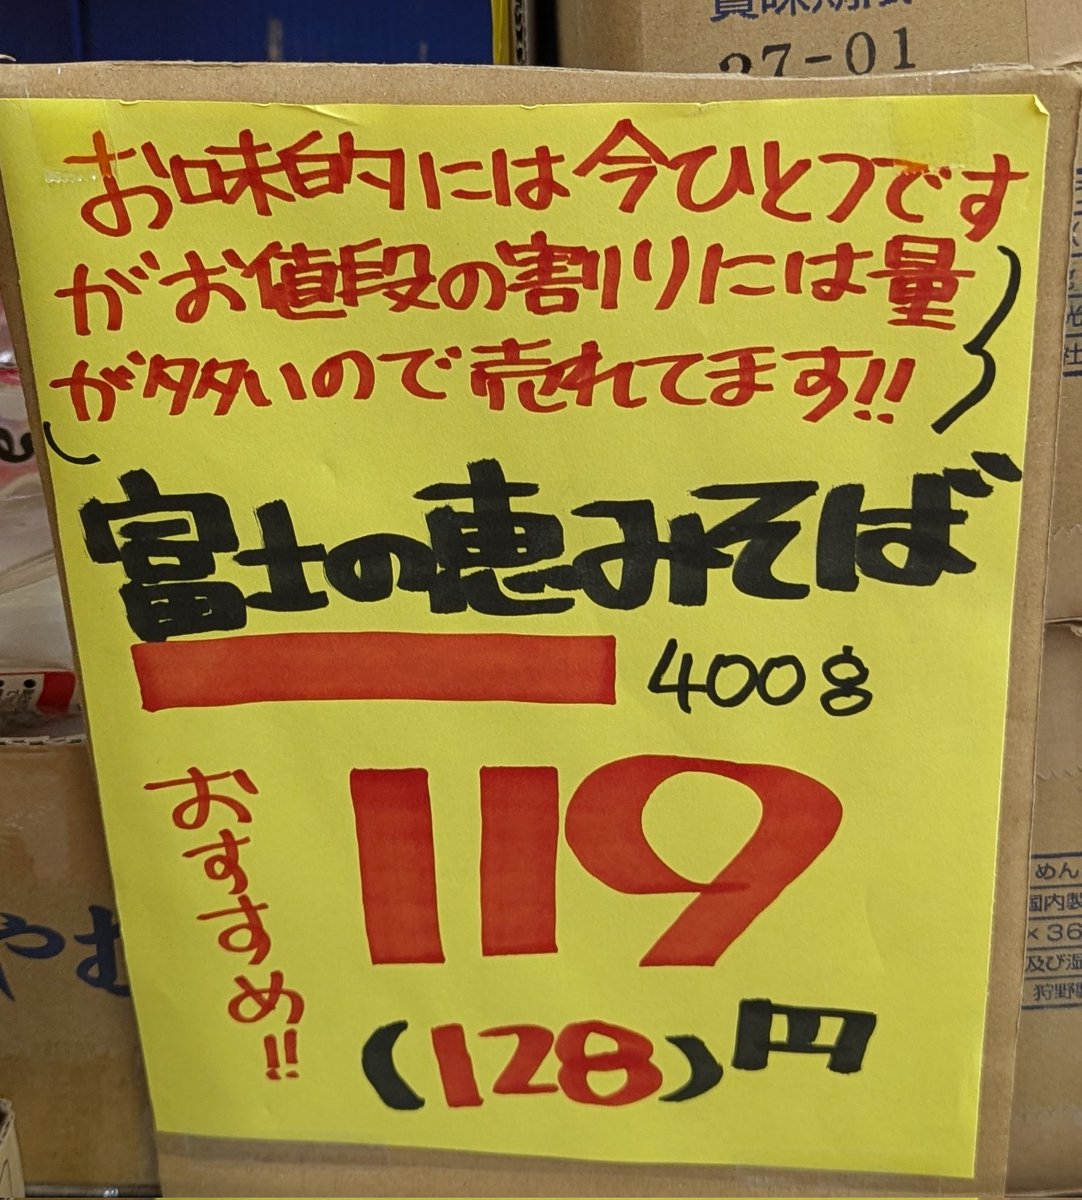 27-01
お味的には今ひとつです
がお値段の割りには量
が多いので売れてます!!
富士の恵みそば
400g
おすすめ!!
119
(128)円
やむ
めん
国内製
×36
及び湿
狩野